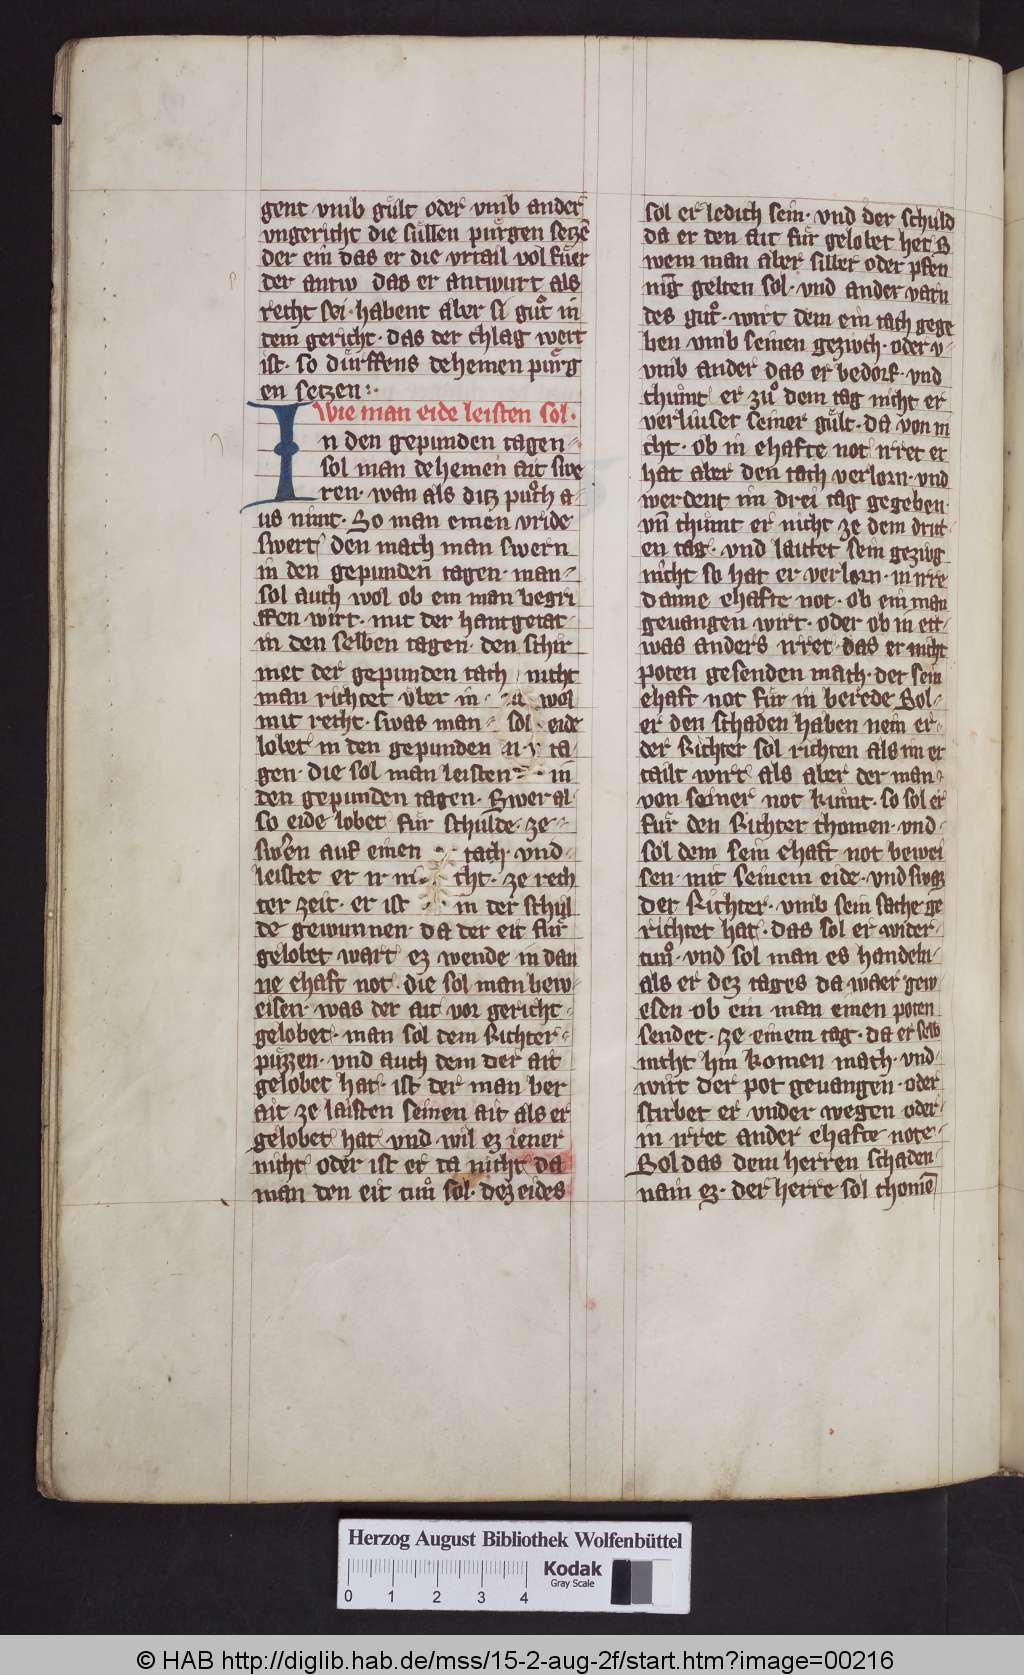 gent vmb guͤlt oder vmb ander
vngericht die suͤllen puͤrgen setzē
der ein das er die vrtail vol fuͤer
der antw das er antwurt als
recht sei · habent aber si guͦt in
dem gericht · das der chlag wert
ist · so duͤrffens dehemen puͤrg
en setzen :·
Wie man eide leisten sol ·
In den gepunden tagen
sol man dehemen ait swe
ren · wan als ditz puͦch a
us nimt · So man einen vride
swert den mach man swern
in den gepunden tagen · man
sol auch wol ob ein man begri
ffen wirt · mit der hantgetat
in den selben tagen · den schir
met der gepunden tach nicht
man richtet vber in wol
mit recht · swas man sol eide
lobet in den gepunden ta
gen · die sol man leisten in
den gepunden tagen · Swer al
so eide lobet fuͤr schulde · ze
swern auf einen tach · vnd
leistet er ir ni cht · ze rech
ter zeit · er ist in der schul
de gewunnen · da der eit fuͤr
gelobet wart ez wende in dan
ne ehaft not · die sol man bew
eisen · was der ait vor gericht
gelobet · man sol dem Richter
puͤzzen · vnd auch dem der ait
gelobet hat · ist der man ber
ait ze laisten seinen ait als er
gelobet hat vnd wil ez iener
nicht oder ist er da nicht da
man den eit tuͦn sol · dez eides
sol er ledich sein · vnd der schuld
da er den ait fuͤr gelobet het S
wem man aber silber oder pfen
nig gelten sol · vnd ander varn
des guͦt · wirt dem ein tach gege
ben vmb seinen geziwch · oder v
vmb ander das er bedorf · vnd
chuͤmt er zuͦ dem tag nicht er
verliuset seiner guͤlt · da von ni
cht · ob in ehafte not irret er
hat aber den tach verlorn · vnd
werdent im drei tag gegeben
vn̄ chuͤmt er nicht ze dem drit
en tag · vnd lautet sein geziug
nicht so hat er verlorn · in irre
danne ehafte not · ob ein man
geuangen wirt · oder ob in ett
was anders irret · das er nicht
poten gesenden mach · der sein
ehaft not fuͤr in berede Sol
er den schaden haben nein er
der Richter sol richten als im er
tailt wirt als aber der man
von seiner not kuͤmt · so sol er
fuͤr den Richter chomen · vnd
sol dem sein ehaft not bewei
sen · mit seinem eide · vnd swaz
der Richter · vmb sein sache ge
richtet hat · das sol er wider
tuͦn · vnd sol man es handeln
als er dez tages da waer gew
esen ob ein man einen poten
sendet · ze einem tag · da er selb
nicht hin komen mach · vnd
wirt der pot geuangen · oder
stirbet er vnder wegen oder
in irret ander ehafte note
Sol das dem herren schaden
nain ez · der herre sol chomē
Herzog August Bibliothek Wolfenbüttel
Kodak
Gray Scale
0 1 2 3 4
© HAB http://diglib.hab.de/mss/15-2-aug-2f/start.htm?image=00216